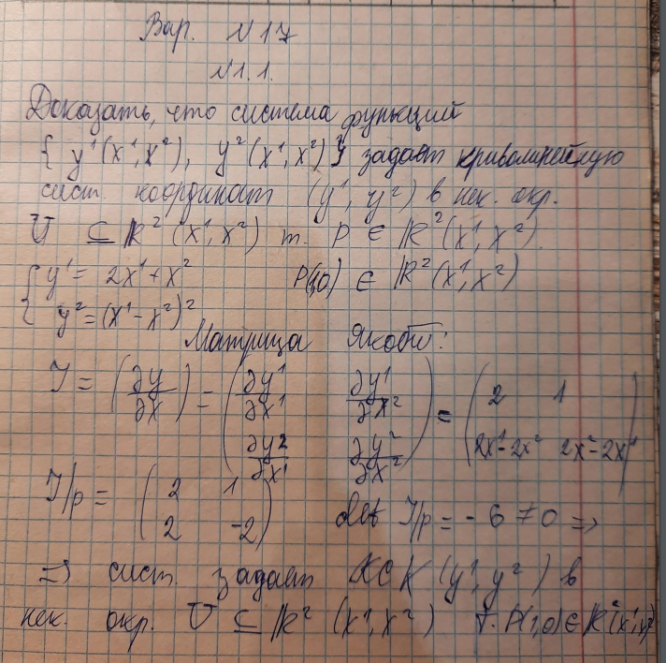 Вар. №17
№1.1.
Доказать, что система функций
{ y¹(x¹, x²), y²(x¹, x²) } задает криволинейную
сист. координат (y¹, y²) в нек. окр.
U ⊆ ℝ² (x¹, x²) т. P ∈ ℝ²(x¹, x²)
{ y¹ = 2x¹ + x² P(1,0) ∈ ℝ²(x¹, x²)
y² = (x¹ - x²)²
Матрица Якоби:
J = (∂y/∂x) = (∂y¹/∂x¹ ∂y¹/∂x² ∂y²/∂x¹ ∂y²/∂x²) = (2 1 2x¹-2x² 2x²-2x¹)
J|p = (2 1 2 -2) det J|p = -6 ≠ 0 =>
=> сист. задает КСК (y¹, y²) в
нек. окр. U ⊆ ℝ² (x¹, x²) т. P(1,0) ∈ ℝ²(x¹, x²)